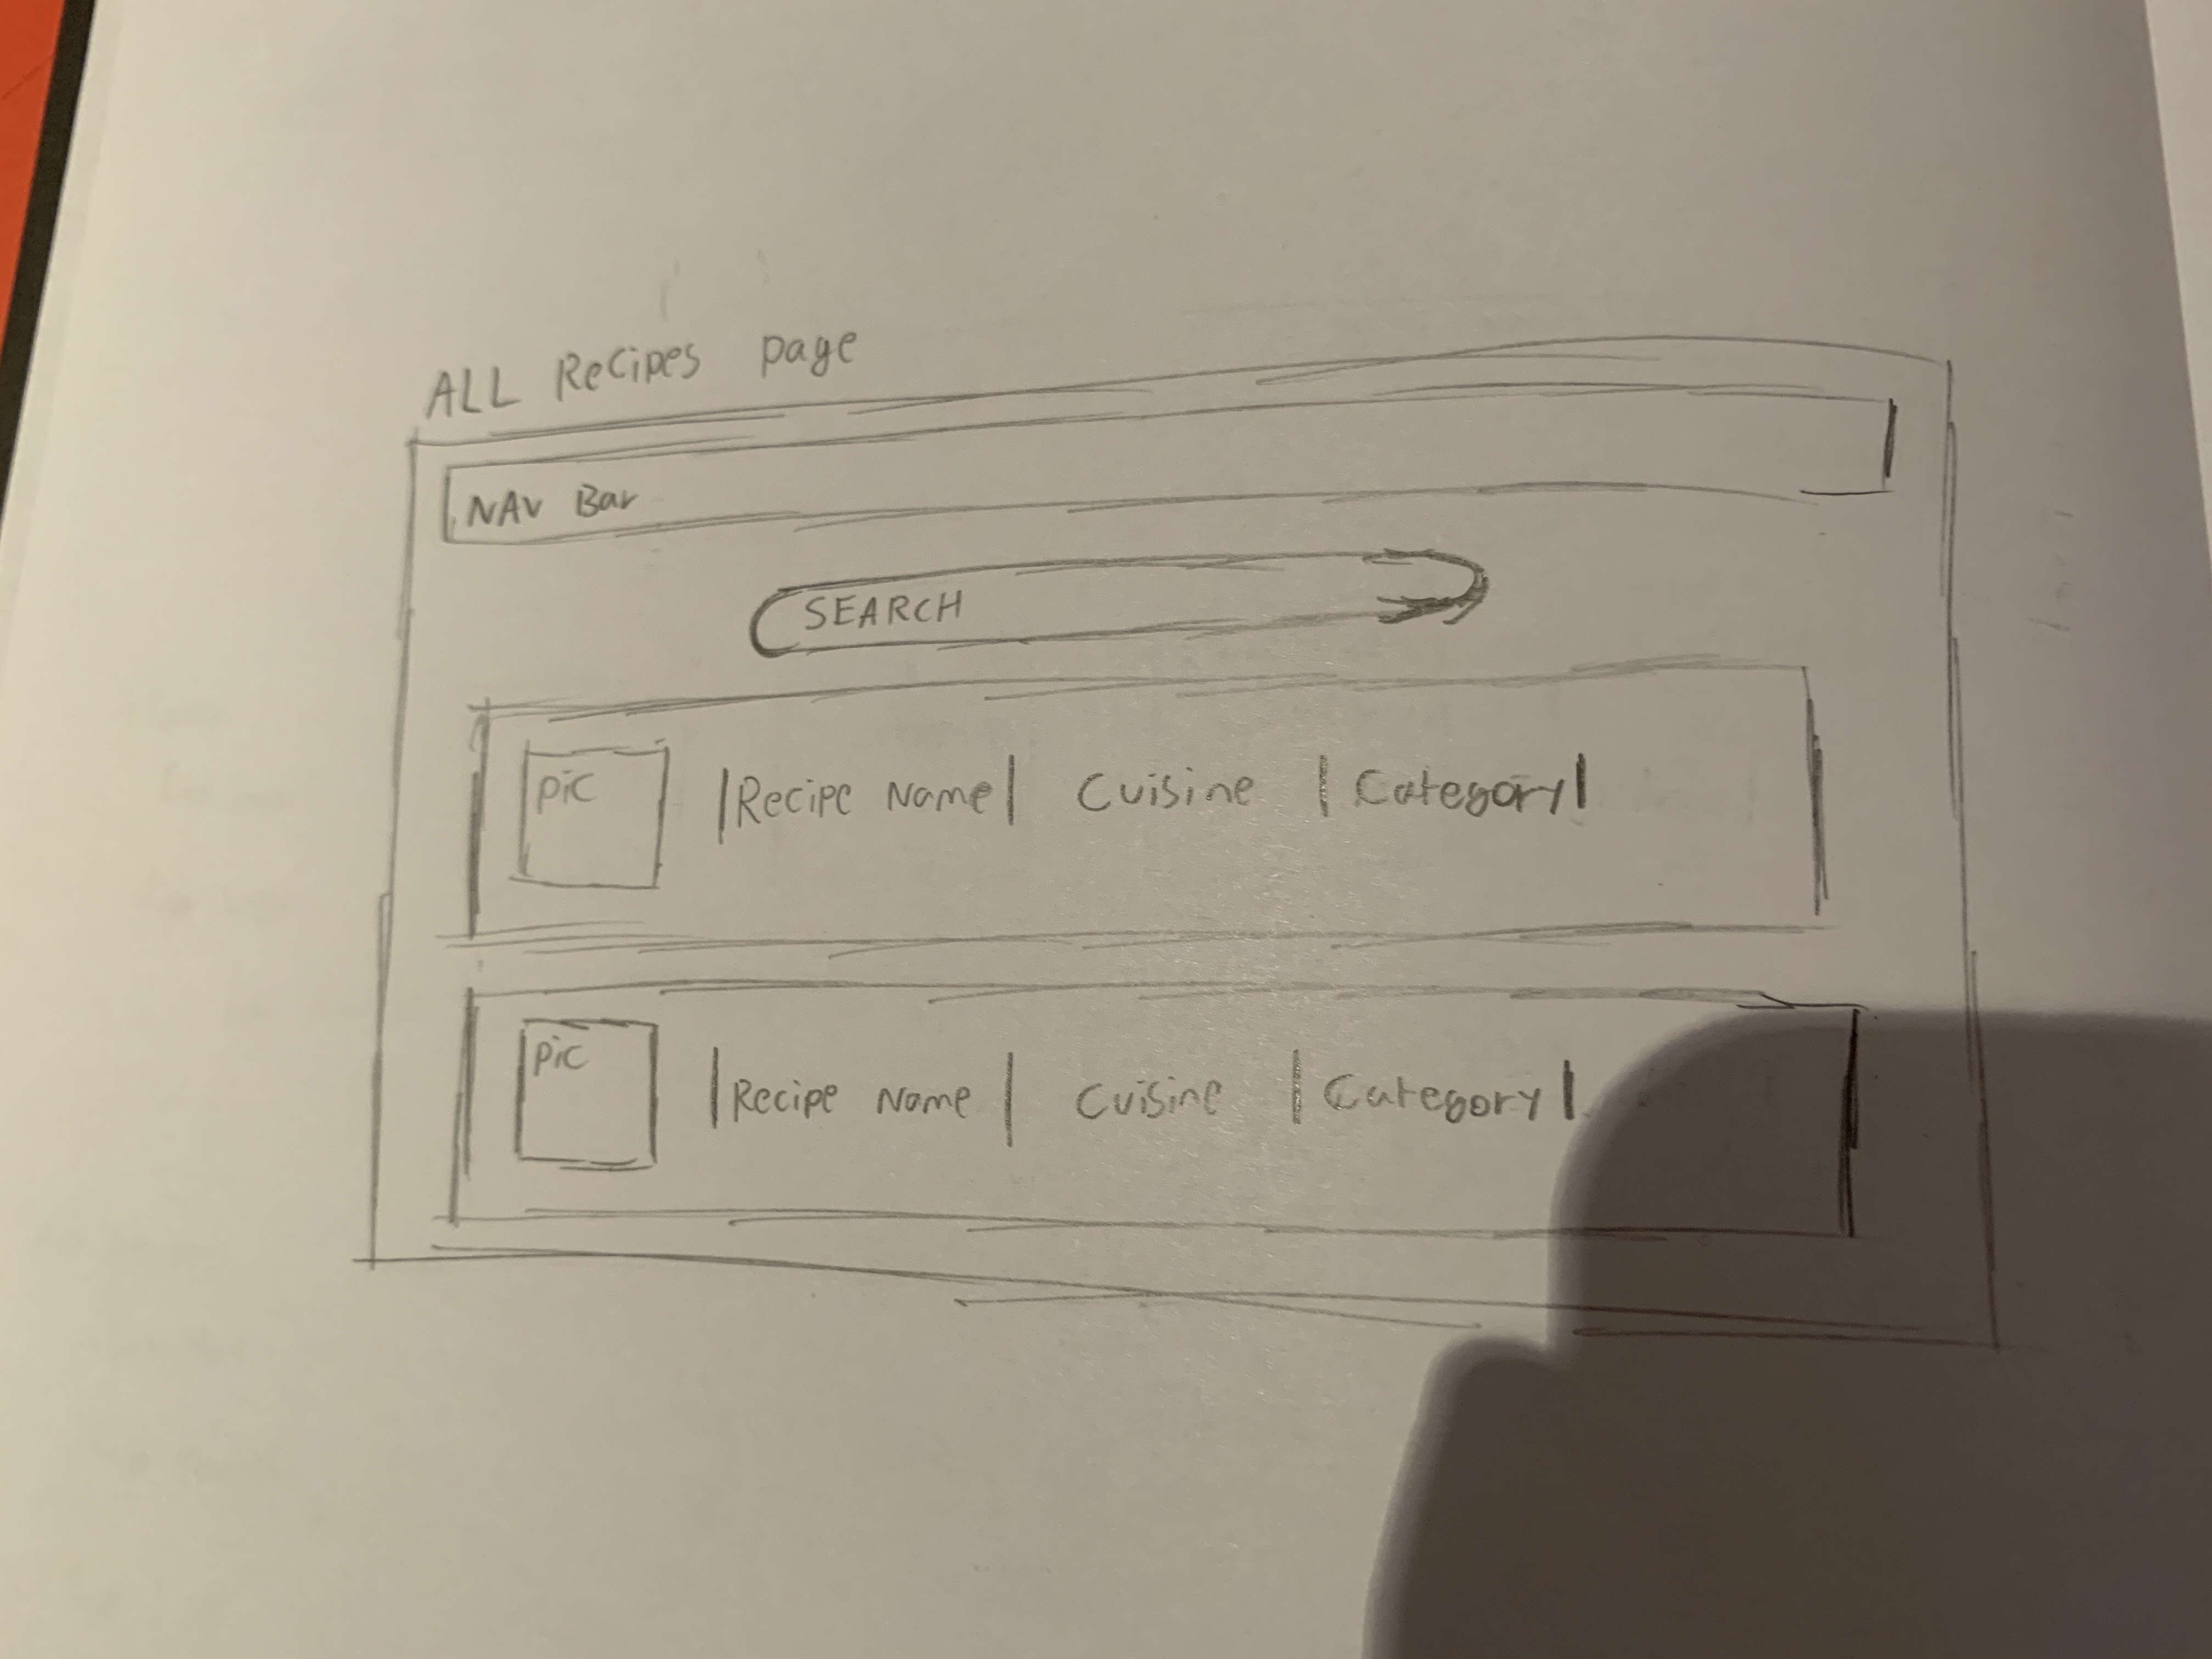 ALL Recipes page
NAV Bar
SEARCH
pic |Recipe Name| Cuisine | Category|
pic |Recipe Name | Cuisine | Category|